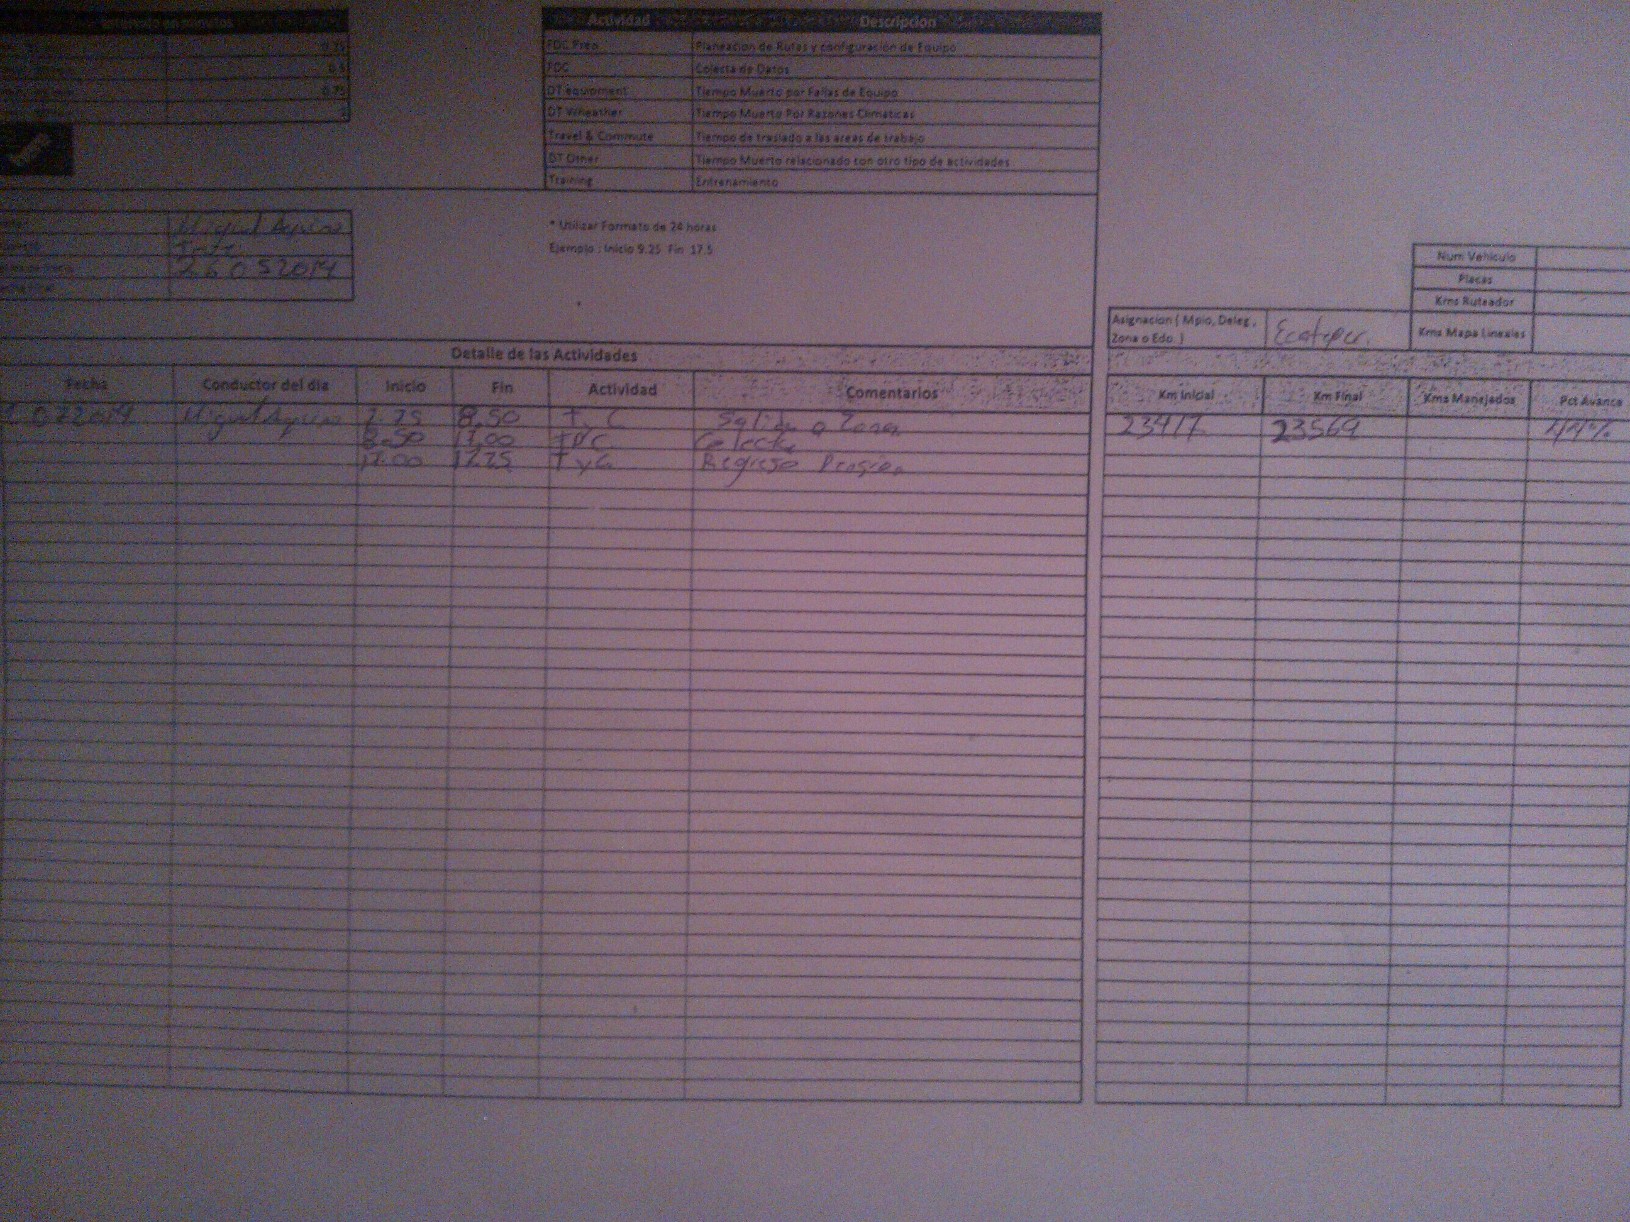 Intervalo en minutos
0.25
0.5
0.75
1
Actividad Descripcion
FDC Prep Planeacion de Rutas y configuración de Equipo
FDC Colecta de Datos
DT equipment Tiempo Muerto por Fallas de Equipo
DT Wheather Tiempo Muerto Por Razones Climaticas
Travel & Commute Tiempo de traslado a las areas de trabajo
DT Other Tiempo Muerto relacionado con otro tipo de actividades
Training Entrenamiento
Miguel
26052014
* Utilizar Formato de 24 horas
Ejemplo : Inicio 9.25 Fin 17.5
Num Vehiculo
Placas
Kms Ruteador
Kms Mapa Lineales
Asignacion ( Mpio, Deleg ,
Zona o Edo. )
Ecatepec.
Detalle de las Actividades
Fecha Conductor del dia Inicio Fin Actividad Comentarios
Km Inicial Km Final Kms Manejados Pct Avance
072014 Miguel 7.75 8.50 T y C Salida a Zona 23417 23569 44%
8.50 17.00 FDC Colecta
17.00 17.75 T y C Regreso